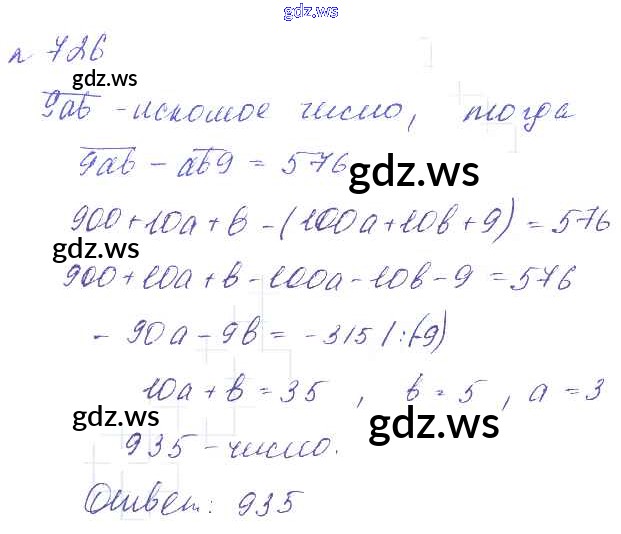 gdz.ws
№ 726
gdz.ws
9ab - искомое число, тогда
9ab - ab9 = 576
gdz.ws
900+10a+b-(100a+10b+9)=576
gdz.ws
900+10a+b-100a-10b-9=576
-90a-9b=-315 /:(-9)
10a+b=35, b=5, a=3
gdz.ws
gdz.ws
935-число.
Ответ: 935